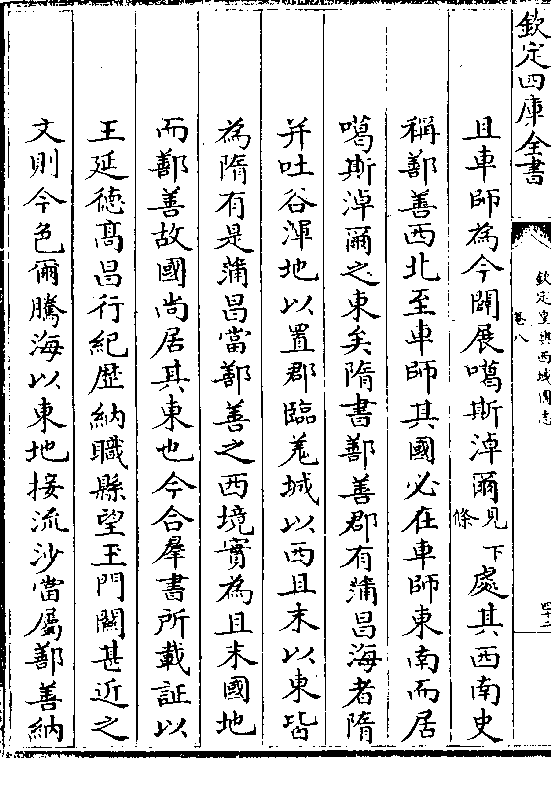 欽定四庫全書
欽定皇輿西域圖志
卷八
四十二
且車師為今闢展噶斯淖爾見下條處其西南史
稱鄯善西北至車師其國必在車師東南而居
噶斯淖爾之東矣隋書鄯善郡有蒲昌海者隋
并吐谷渾地以置郡臨羌城以西且末以東皆
為隋有是蒲昌當鄯善之西境實為且末國地
而鄯善故國尚居其東也今合羣書所載証以
王延德髙昌行紀歴納職縣望玉門闗甚近之
文則今色爾騰海以東地接流沙當屬鄯善納